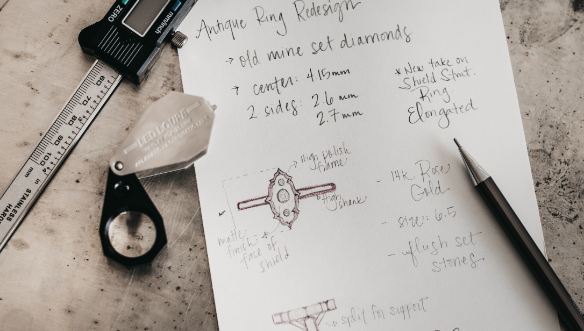 Antique Ring Redesign
→ old mine set diamonds
→ center: 4.15mm
2 sides: 2.6 mm
2.7mm
* New take on
Shield
Ring.
Elongated
High polish
frame
shank
matte
finish
face of
shield
- 14k Rose
Gold
- size: 6.5
- flush set
stones
split for support
ZERO
STAINLESS
HARD